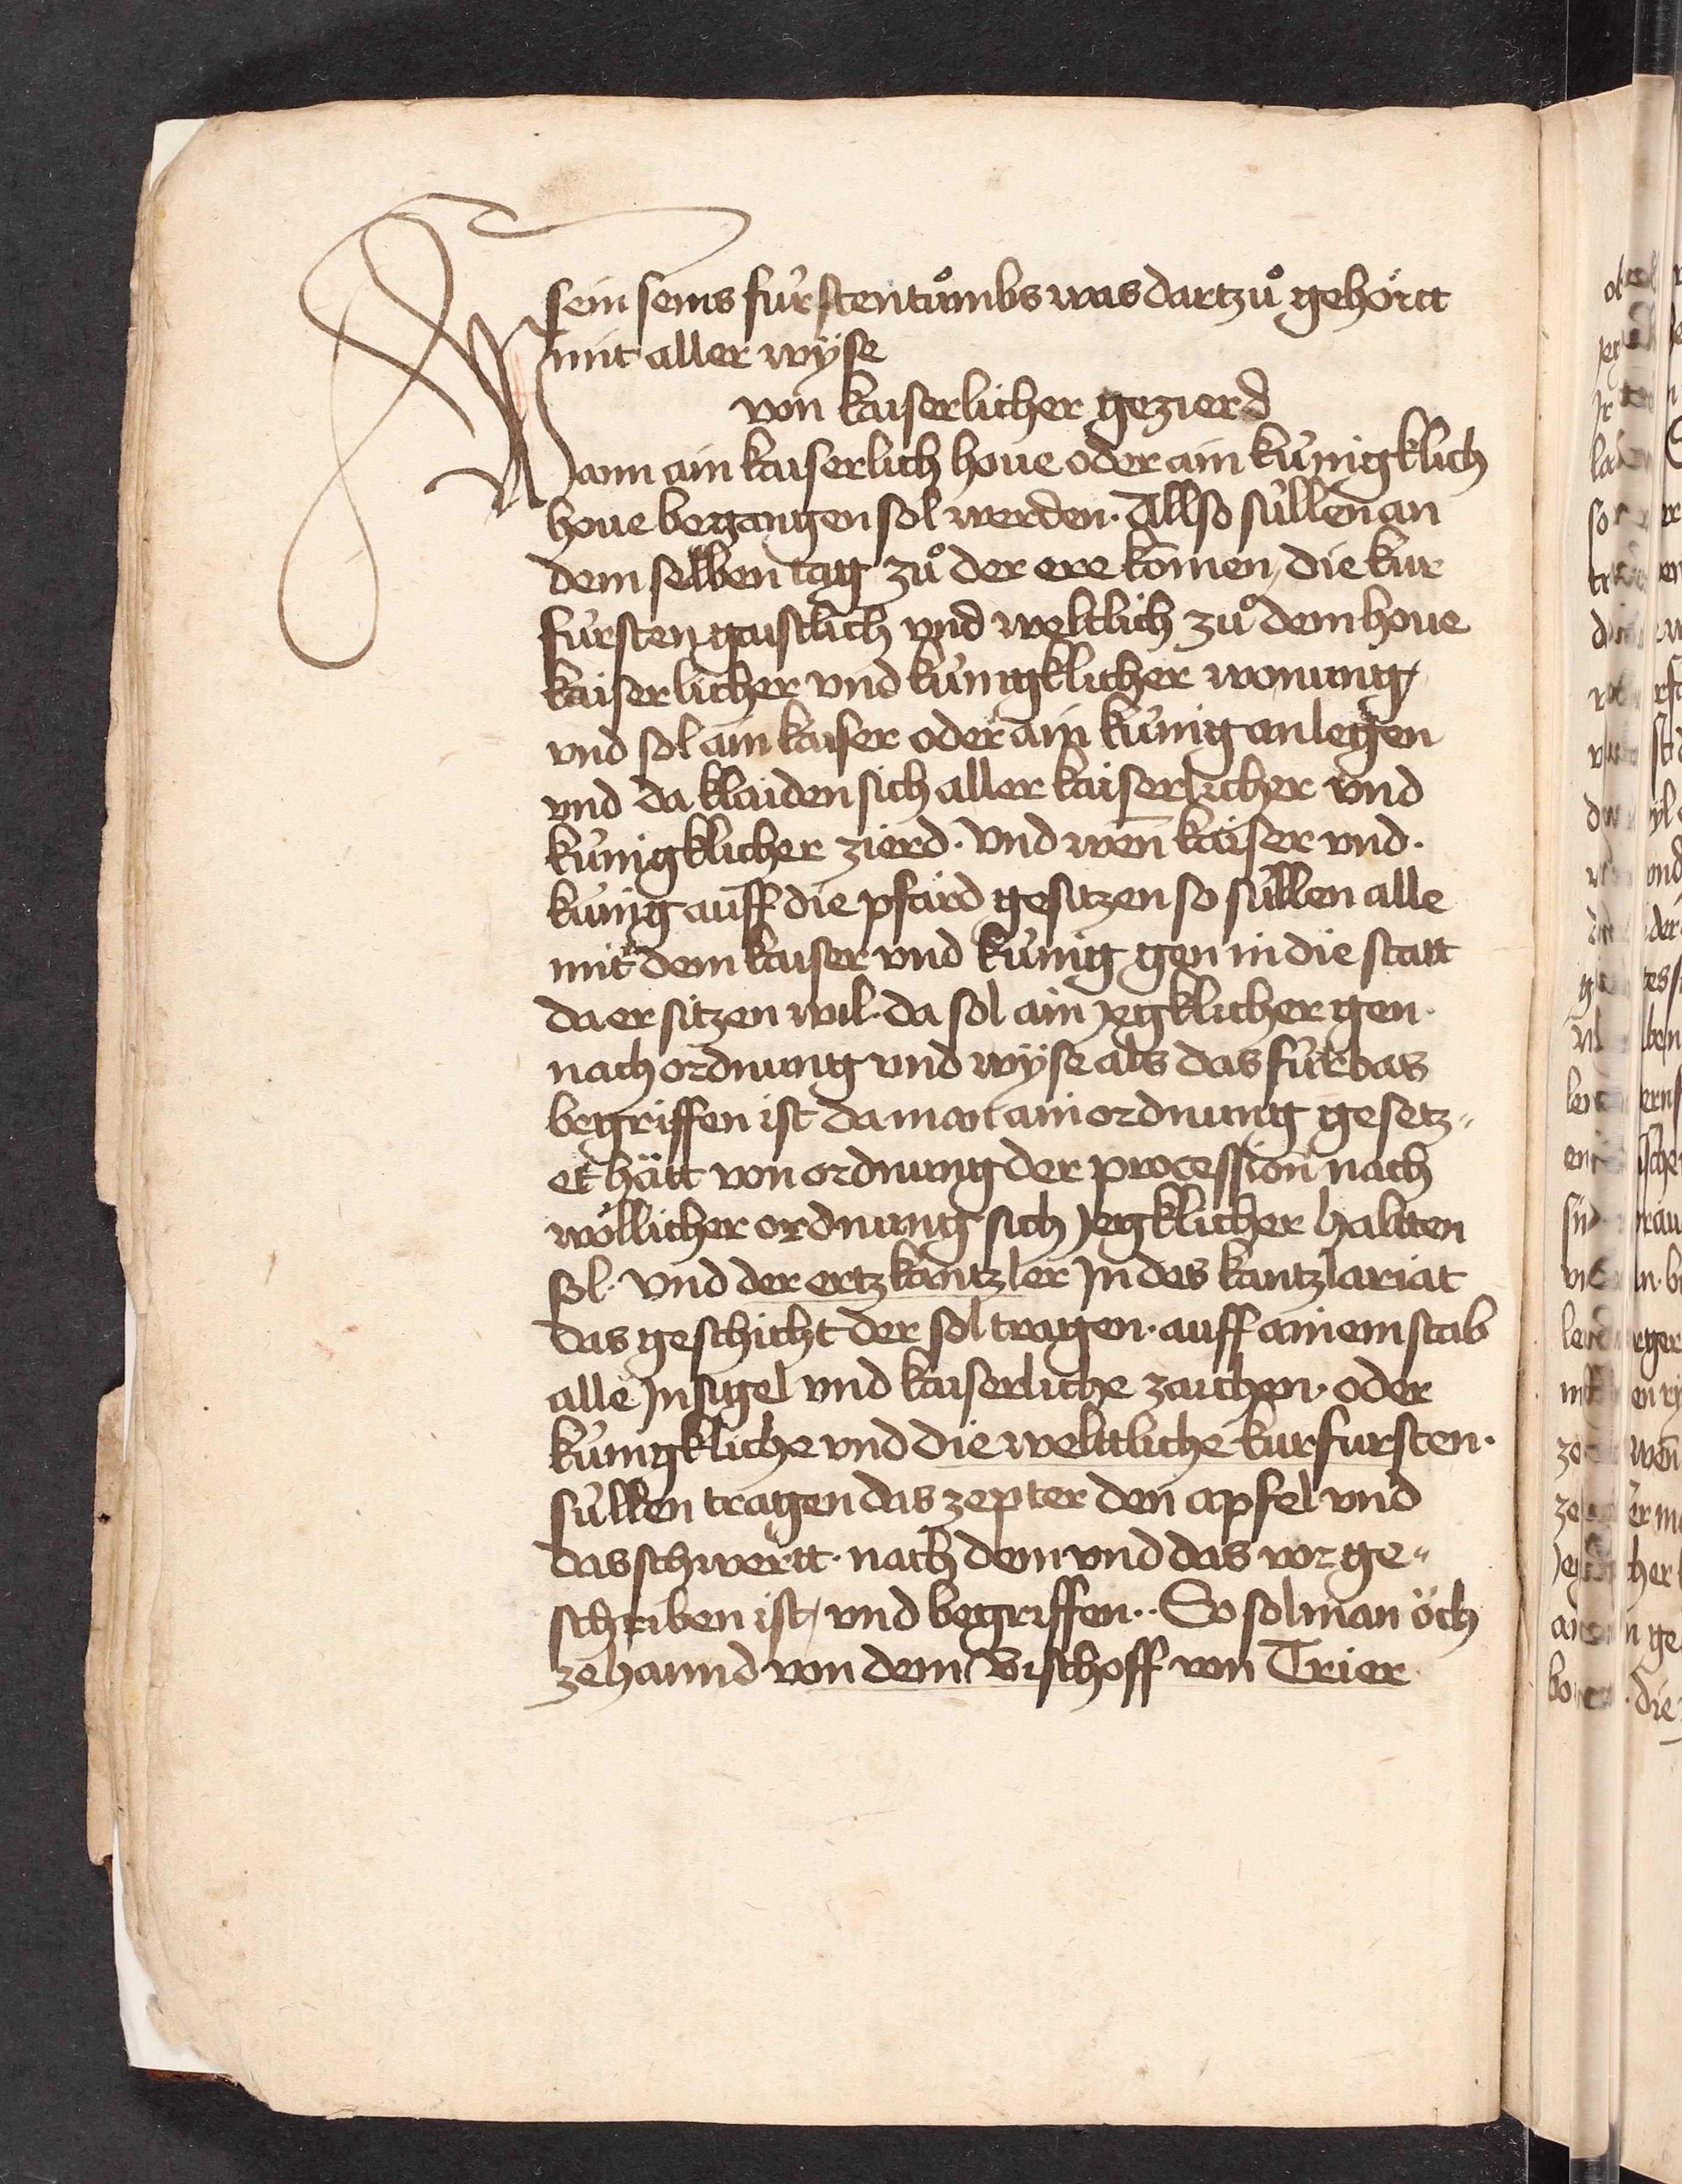 sein seins fürstentůmbs was dartzů gehörtt
mit aller wÿse
von kaiserlicher gezierd
Wann ain kaiserlich houe oder ain kúnigklich
houe begangen sol werden· Allso súllen an
dem selben tag zů der ere komen / die kur
fúrsten gaistlich vnd weltlich zů dem houe
kaiserlicher vnd kúnigklicher wonung /
vnd sol ain kaiser oder ain kúnig an legen
vnd da klaiden sich aller kaiserlicher vnd
kúnigklicher zierd· Vnd wen̄ kaiser vnd·
kúnig auff die pfärd gesitzen so súllen alle
mit dem kaiser vnd kúnig gen in die statt
da er sitzen wil· da sol ain yegklicher gen·
nach ordnung vnd wÿse als das fúrbas
begriffen ist da man ain ordnung gesetz„
et hätt von ordnung der procession nach
wöllicher ordnung sich yegklicher haltten
sol· Vnd der ertzkantzler Jn des kantzlariat
das geschicht der sol tragen· auff ainem stab
alle Jnsigel vnd kaiserliche zaichen· oder
kúnigkliche vnd die weltliche kurfursten·
súllen tragen das zepter den apfel vnd
das schwertt· nach dem vnd das vor ge„
schriben ist / vnd begriffen·· So sol man öch
zehannd von dem Bischoff von Trier